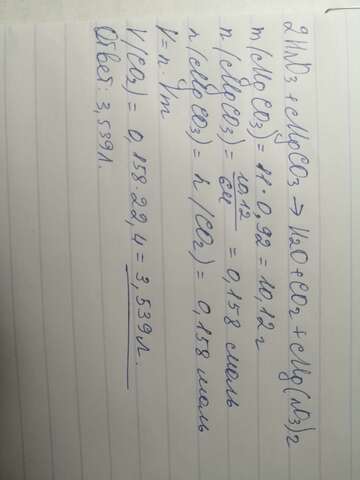 2HNO3 + MgCO3 → H2O + CO2 + Mg(NO3)2
m(MgCO3) = 11 · 0,92 = 10,12 г
n(MgCO3) = 10,12 / 64 = 0,158 моль
n(MgCO3) = n(CO2) = 0,158 моль
V = n · Vm
V(CO2) = 0,158 · 22,4 = 3,539 л.
Ответ: 3,539 л.